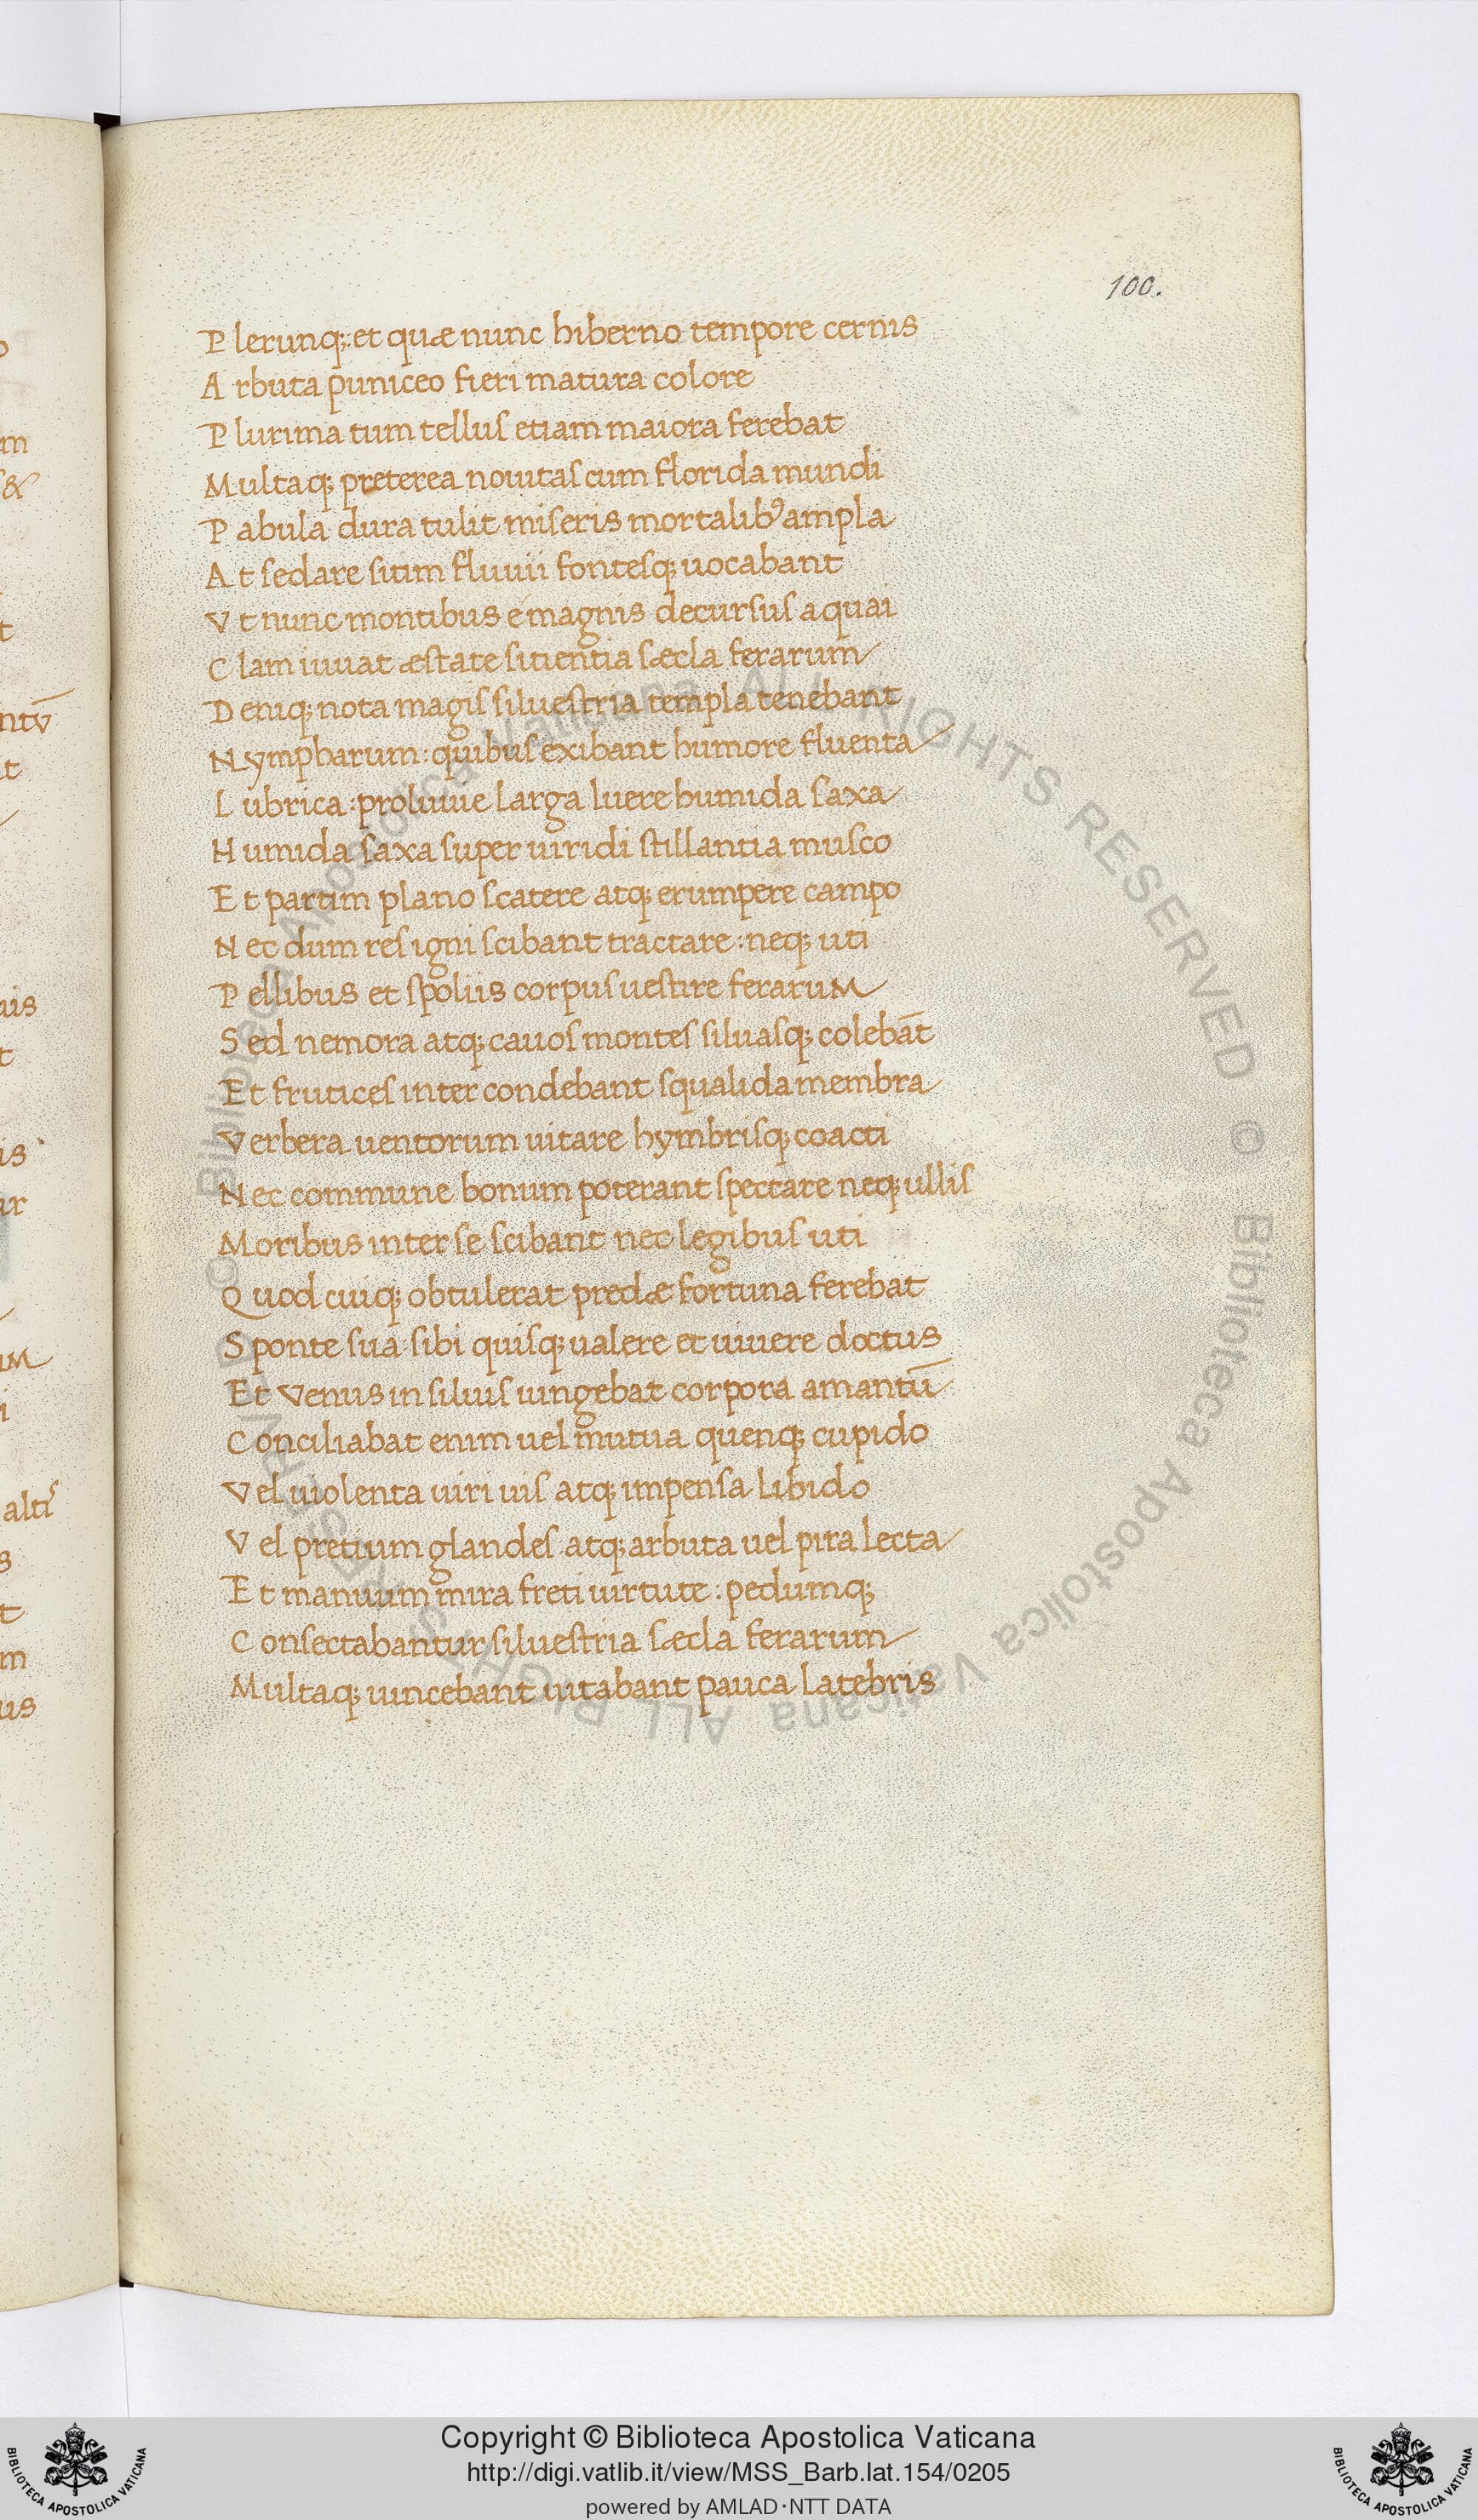 100.
P lerunq;: et quæ nunc hiberno tempore cernis
A rbuta puniceo fieri matura colore
P lurima tum tellus etiam maiora ferebat
M ultaq; preterea nouitas cum florida mundi
P abula dura tulit miseris mortalibꝰ ampla
A t sedare sitim fluuii fontesq; uocabant
V t nunc montibus e magnis decursus aquai
C lam iuuat æstate sitientia sæcla ferarum
D eniq; nota magis siluestria templa tenebant
N ympharum: quibus exibant humore fluenta
L ubrica: proluuie larga luere humida saxa
H umida saxa super uiridi stillantia musco
E t partim plano scatere atq; erumpere campo
N ec dum res igni scibant tractare: neq; uti
P ellibus et spoliis corpus uestire ferarum
S ed nemora atq; cauos montes siluasq; colebāt
E t frutices inter condebant squalida membra
V erbera uentorum uitare hymbrisq; coacti
N ec commune bonum poterant spectare neq; ullis
M oribus inter se scibant nec legibus uti
Q uod cuiq; obtulerat predæ fortuna ferebat
S ponte sua sibi quisq; ualere et uiuere doctus
E t Venus in siluis iungebat corpora amantū
C onciliabat enim uel mutua quenq; cupido
V el uiolenta uiri uis atq; impensa libido
V el pretium glandes atq; arbuta uel pira lecta
E t manuum mira freti uirtute: pedumq;
C onsectabantur siluestria sæcla ferarum
M ultaq; uincebant uitabant pauca latebris
Copyright © Biblioteca Apostolica Vaticana
http://digi.vatlib.it/view/MSS_Barb.lat.154/0205
powered by AMLAD·NTT DATA